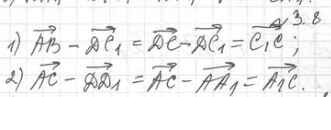 № 3.8
1) $\overrightarrow{AB} - \overrightarrow{DC_1} = \overrightarrow{DC} - \overrightarrow{DC_1} = \overrightarrow{C_1C}$;
2) $\overrightarrow{AC} - \overrightarrow{DD_1} = \overrightarrow{AC} - \overrightarrow{AA_1} = \overrightarrow{A_1C}$.